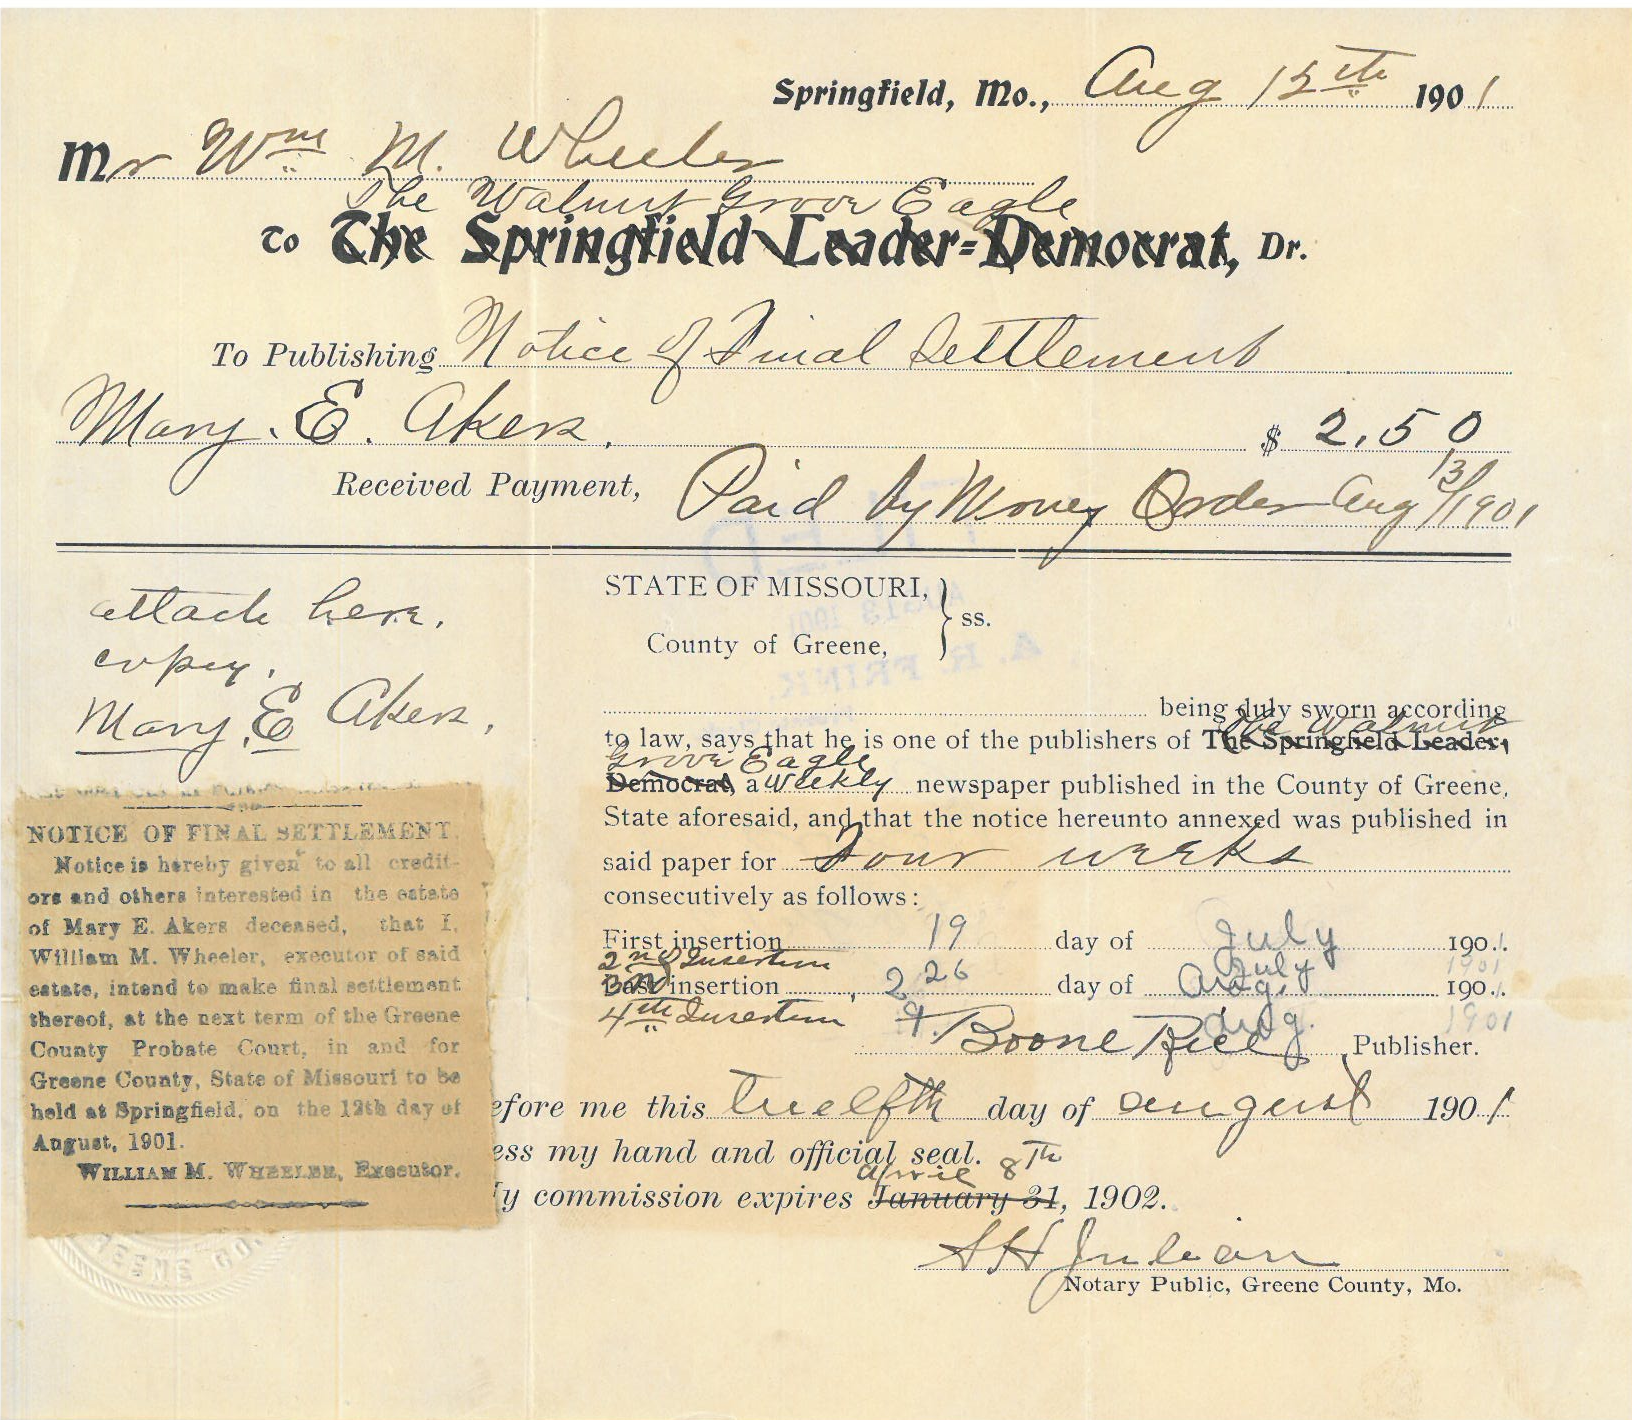 Springfield, Mo., Aug 12th 1901
Mr Wm M. Wheeler
The Walnut Grove Eagle
To The Springfield Leader-Democrat, Dr.
To Publishing Notice of Final Settlement
Mary. E. Akers. $ 2.50
Received Payment, Paid by Money Order Aug 13/1901
FILED
AUG 13 1901
A. R. FRINK.
attach here.
copy.
Mary. E Akers.
STATE OF MISSOURI,
County of Greene, } ss.
being duly sworn according
The Walnut
to law, says that he is one of the publishers of The Springfield Leader-
Grove Eagle
Democrat, a Weekly newspaper published in the County of Greene,
State aforesaid, and that the notice hereunto annexed was published in
said paper for Four weeks
consecutively as follows:
First insertion 19 day of July 1901.
2nd Insertion 26 July 1901
3rd insertion, 2 day of Aug. 1901.
4th Insertion 9. Aug. 1901
Boone Rice, Publisher.
efore me this twelfth day of august 1901
ess my hand and official seal.
april 8th
y commission expires January 31, 1902.
S H Julian
Notary Public, Greene County, Mo.
NOTICE OF FINAL SETTLEMENT.
Notice is hereby given to all credit-
ors and others interested in the estate
of Mary E. Akers deceased, that I,
William M. Wheeler, executor of said
estate, intend to make final settlement
thereof, at the next term of the Greene
County Probate Court, in and for
Greene County, State of Missouri to be
held at Springfield, on the 12th day of
August, 1901.
WILLIAM M. WHEELER, Executor.
EENE CO.